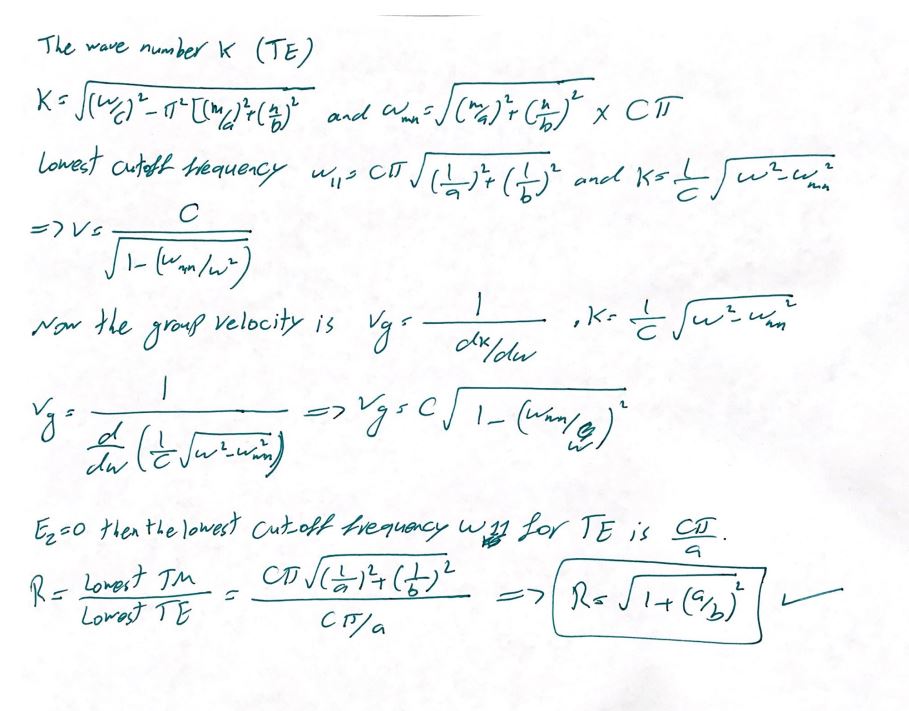 The wave number K (TE)
K = √((w/c)² - π² [(m/a)² + (n/b)²  and ω_mn = √((m/a)² + (n/b)²) × Cπ
Lowest cutoff frequency ω_11 = Cπ √((1/a)² + (1/b)²) and K = 1/C √(ω² - ω_mn²)
=> V = C / √(1 - (ω_mn/ω²)
Now the group velocity is Vg = 1 / (dK/dω) , K = 1/C √(ω² - ω_mn²)
Vg = 1 / (d/dω (1/C √(ω² - ω_mn²))) => Vg = C √(1 - (ω_mn/ω)²)
E_z=0 then the lowest cut-off frequency ω_11 for TE is Cπ/a.
R = Lowest TM / Lowest TE = Cπ √((1/a)² + (1/b)²) / (Cπ/a) => R = √(1 + (a/b)²) ✓